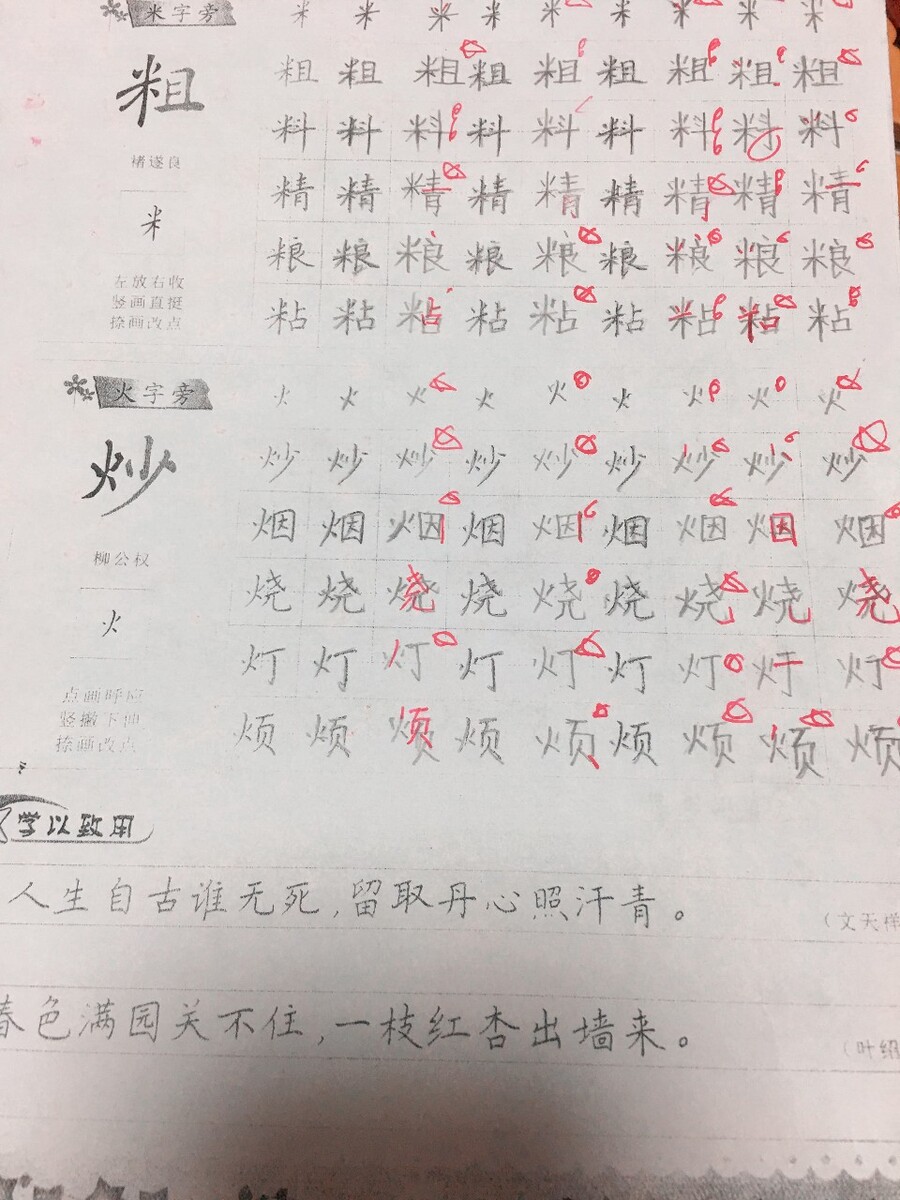 米字旁 米 米 米 米 米 米 米 米 米
粗 粗 粗 粗 粗 粗 粗 粗 粗 粗
料 料 料 料 料 料 料 料 料
褚遂良
精 精 精 精 精 精 精 精 精
米
粮 粮 粮 粮 粮 粮 粮 粮 粮
左放右收
竖画直挺
捺画改点
粘 粘 粘 粘 粘 粘 粘 粘 粘
火字旁 火 火 火 火 火 火 火 火 火
炒 炒 炒 炒 炒 炒 炒 炒 炒 炒
烟 烟 烟 烟 烟 烟 烟 烟 烟
柳公权
烧 烧 烧 烧 烧 烧 烧 烧 烧
火
灯 灯 灯 灯 灯 灯 灯 灯 灯
点画呼应
竖撇下曲
捺画改点
烦 烦 烦 烦 烦 烦 烦 烦 烦
学以致用
人生自古谁无死,留取丹心照汗青。
(文天祥
春色满园关不住,一枝红杏出墙来。
(叶绍